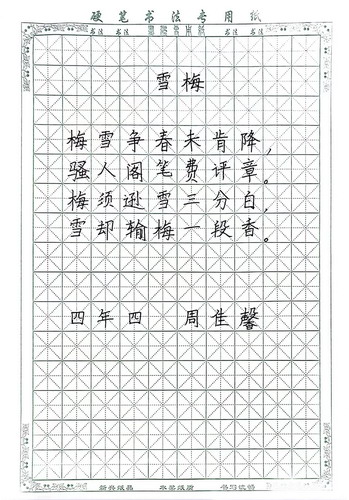 硬笔书法专用纸
雪梅
梅雪争春未肯降，
骚人阁笔费评章。
梅须逊雪三分白，
雪却输梅一段香。
四年四 周佳馨